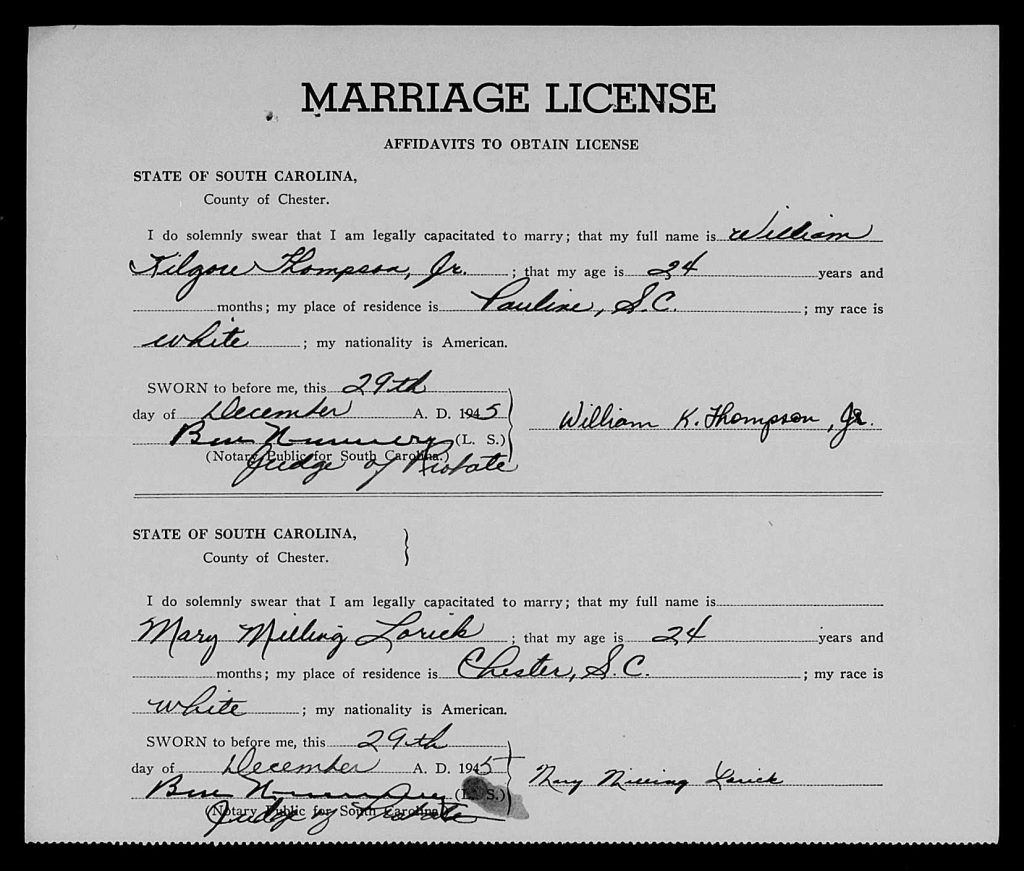 MARRIAGE LICENSE
AFFIDAVITS TO OBTAIN LICENSE
STATE OF SOUTH CAROLINA,
County of Chester.
I do solemnly swear that I am legally capacitated to marry; that my full name is William
Kilgore Thompson, Jr. ; that my age is 24 years and
months; my place of residence is Pauline, S.C. ; my race is
white ; my nationality is American.
SWORN to before me, this 29th
day of December A. D. 1945
William K. Thompson, Jr.
Ben Nunnery (L. S.)
(Notary Public for South Carolina.)
Judge of Probate
STATE OF SOUTH CAROLINA,
County of Chester.
I do solemnly swear that I am legally capacitated to marry; that my full name is
Mary Milling Lorick ; that my age is 24 years and
months; my place of residence is Chester, S.C. ; my race is
white ; my nationality is American.
SWORN to before me, this 29th
day of December A. D. 1945
Mary Milling Lorick
Ben Nunnery (L. S.)
(Notary Public for South Carolina.)
Judge of Probate